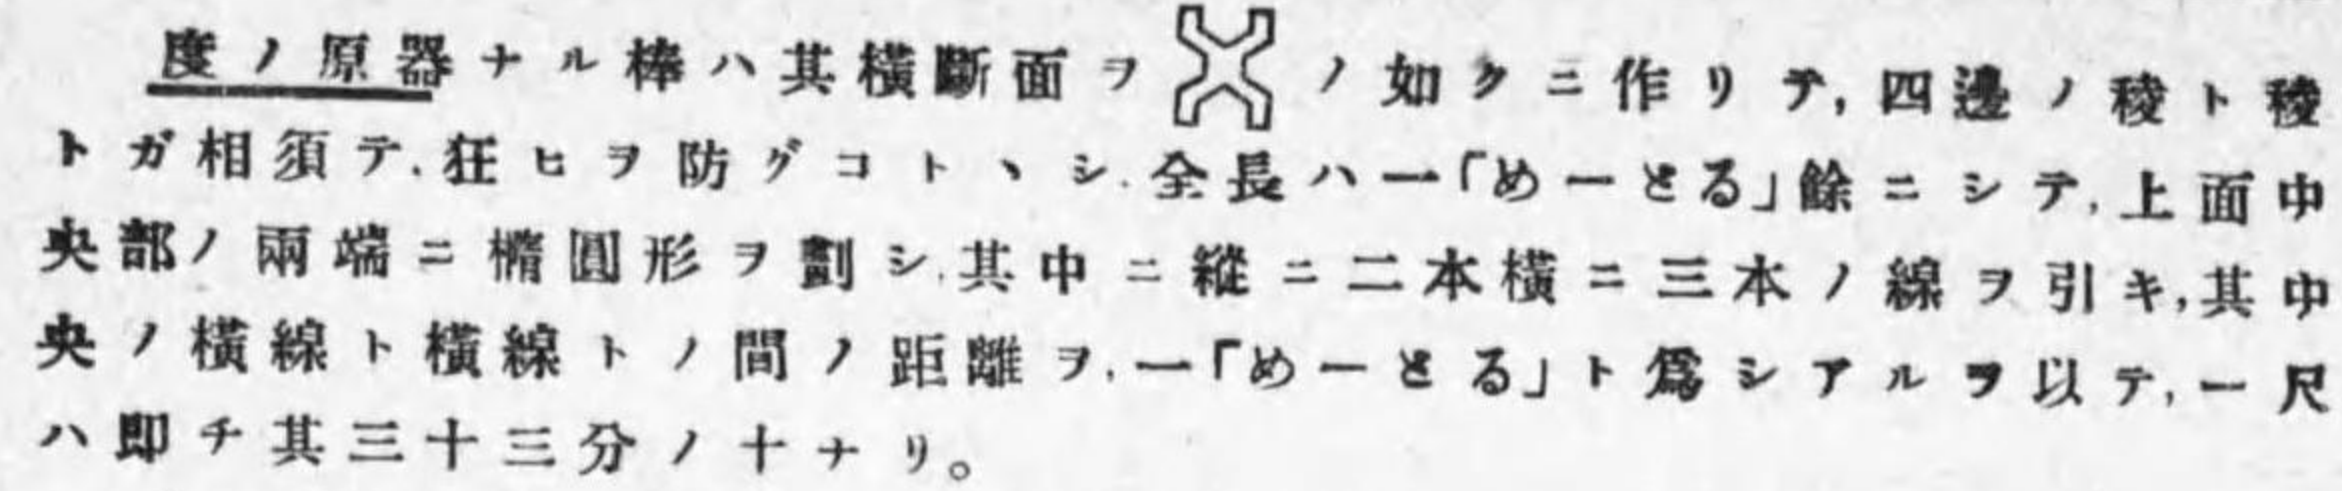 度ノ原器ナル棒ハ其橫斷面ヲノ如クニ作リテ,四邊ノ稜ト稜
トガ相須テ,狂ヒヲ防グコトヽシ,全長ハ一「めーとる」餘ニシテ,上面中
央部ノ兩端ニ橢圓形ヲ劃シ,其中ニ縱ニ二本橫ニ三本ノ線ヲ引キ,其中
央ノ橫線ト橫線トノ間ノ距離ヲ,一「めーとる」ト爲シアルヲ以テ,一尺
ハ即チ其三十三分ノ十ナリ。